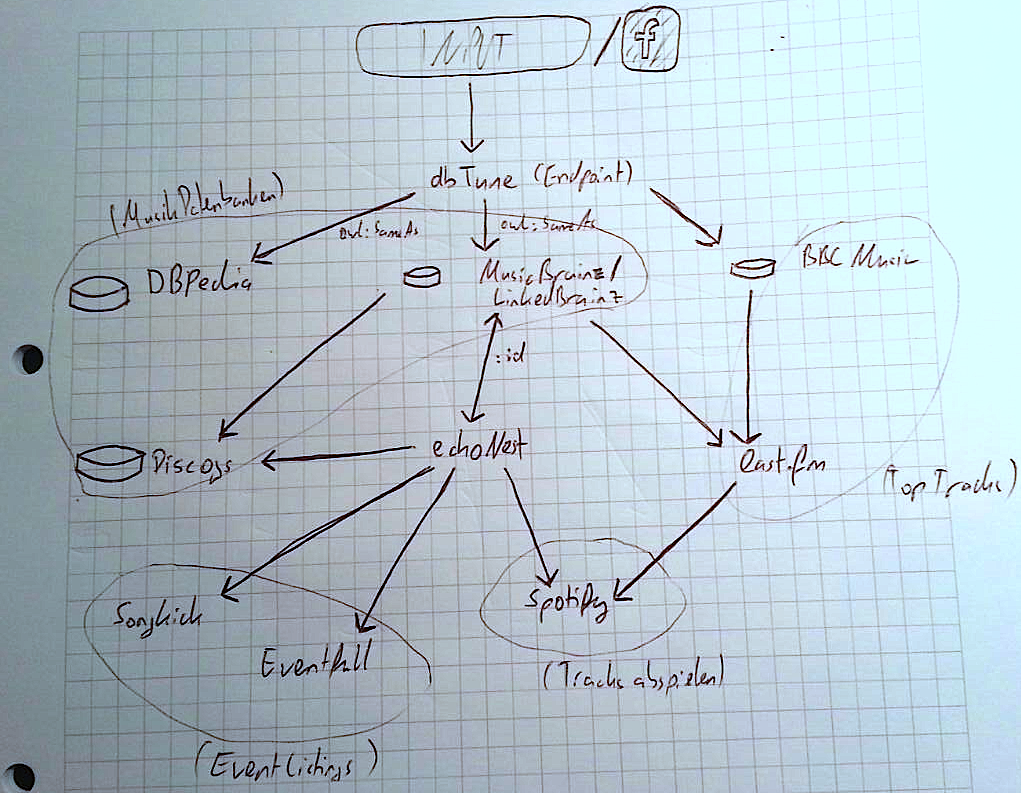 INPUT / f
dbTune (Endpoint)
(MusikDatenbanken)
owl:SameAs
owl:SameAs
DBPedia
MusicBrainz/
LinkedBrainz
BBC Music
:id
Discogs
echoNest
last.fm
(Top Tracks)
Songkick
Spotify
Eventfull
(Tracks abspielen)
(Eventlistings)